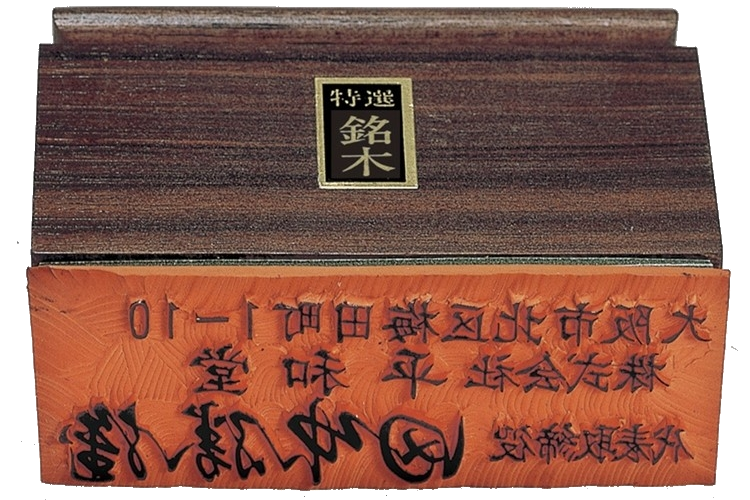 特選
銘木
大阪市北区梅田町1-10
株式会社 平和堂
代表取締役